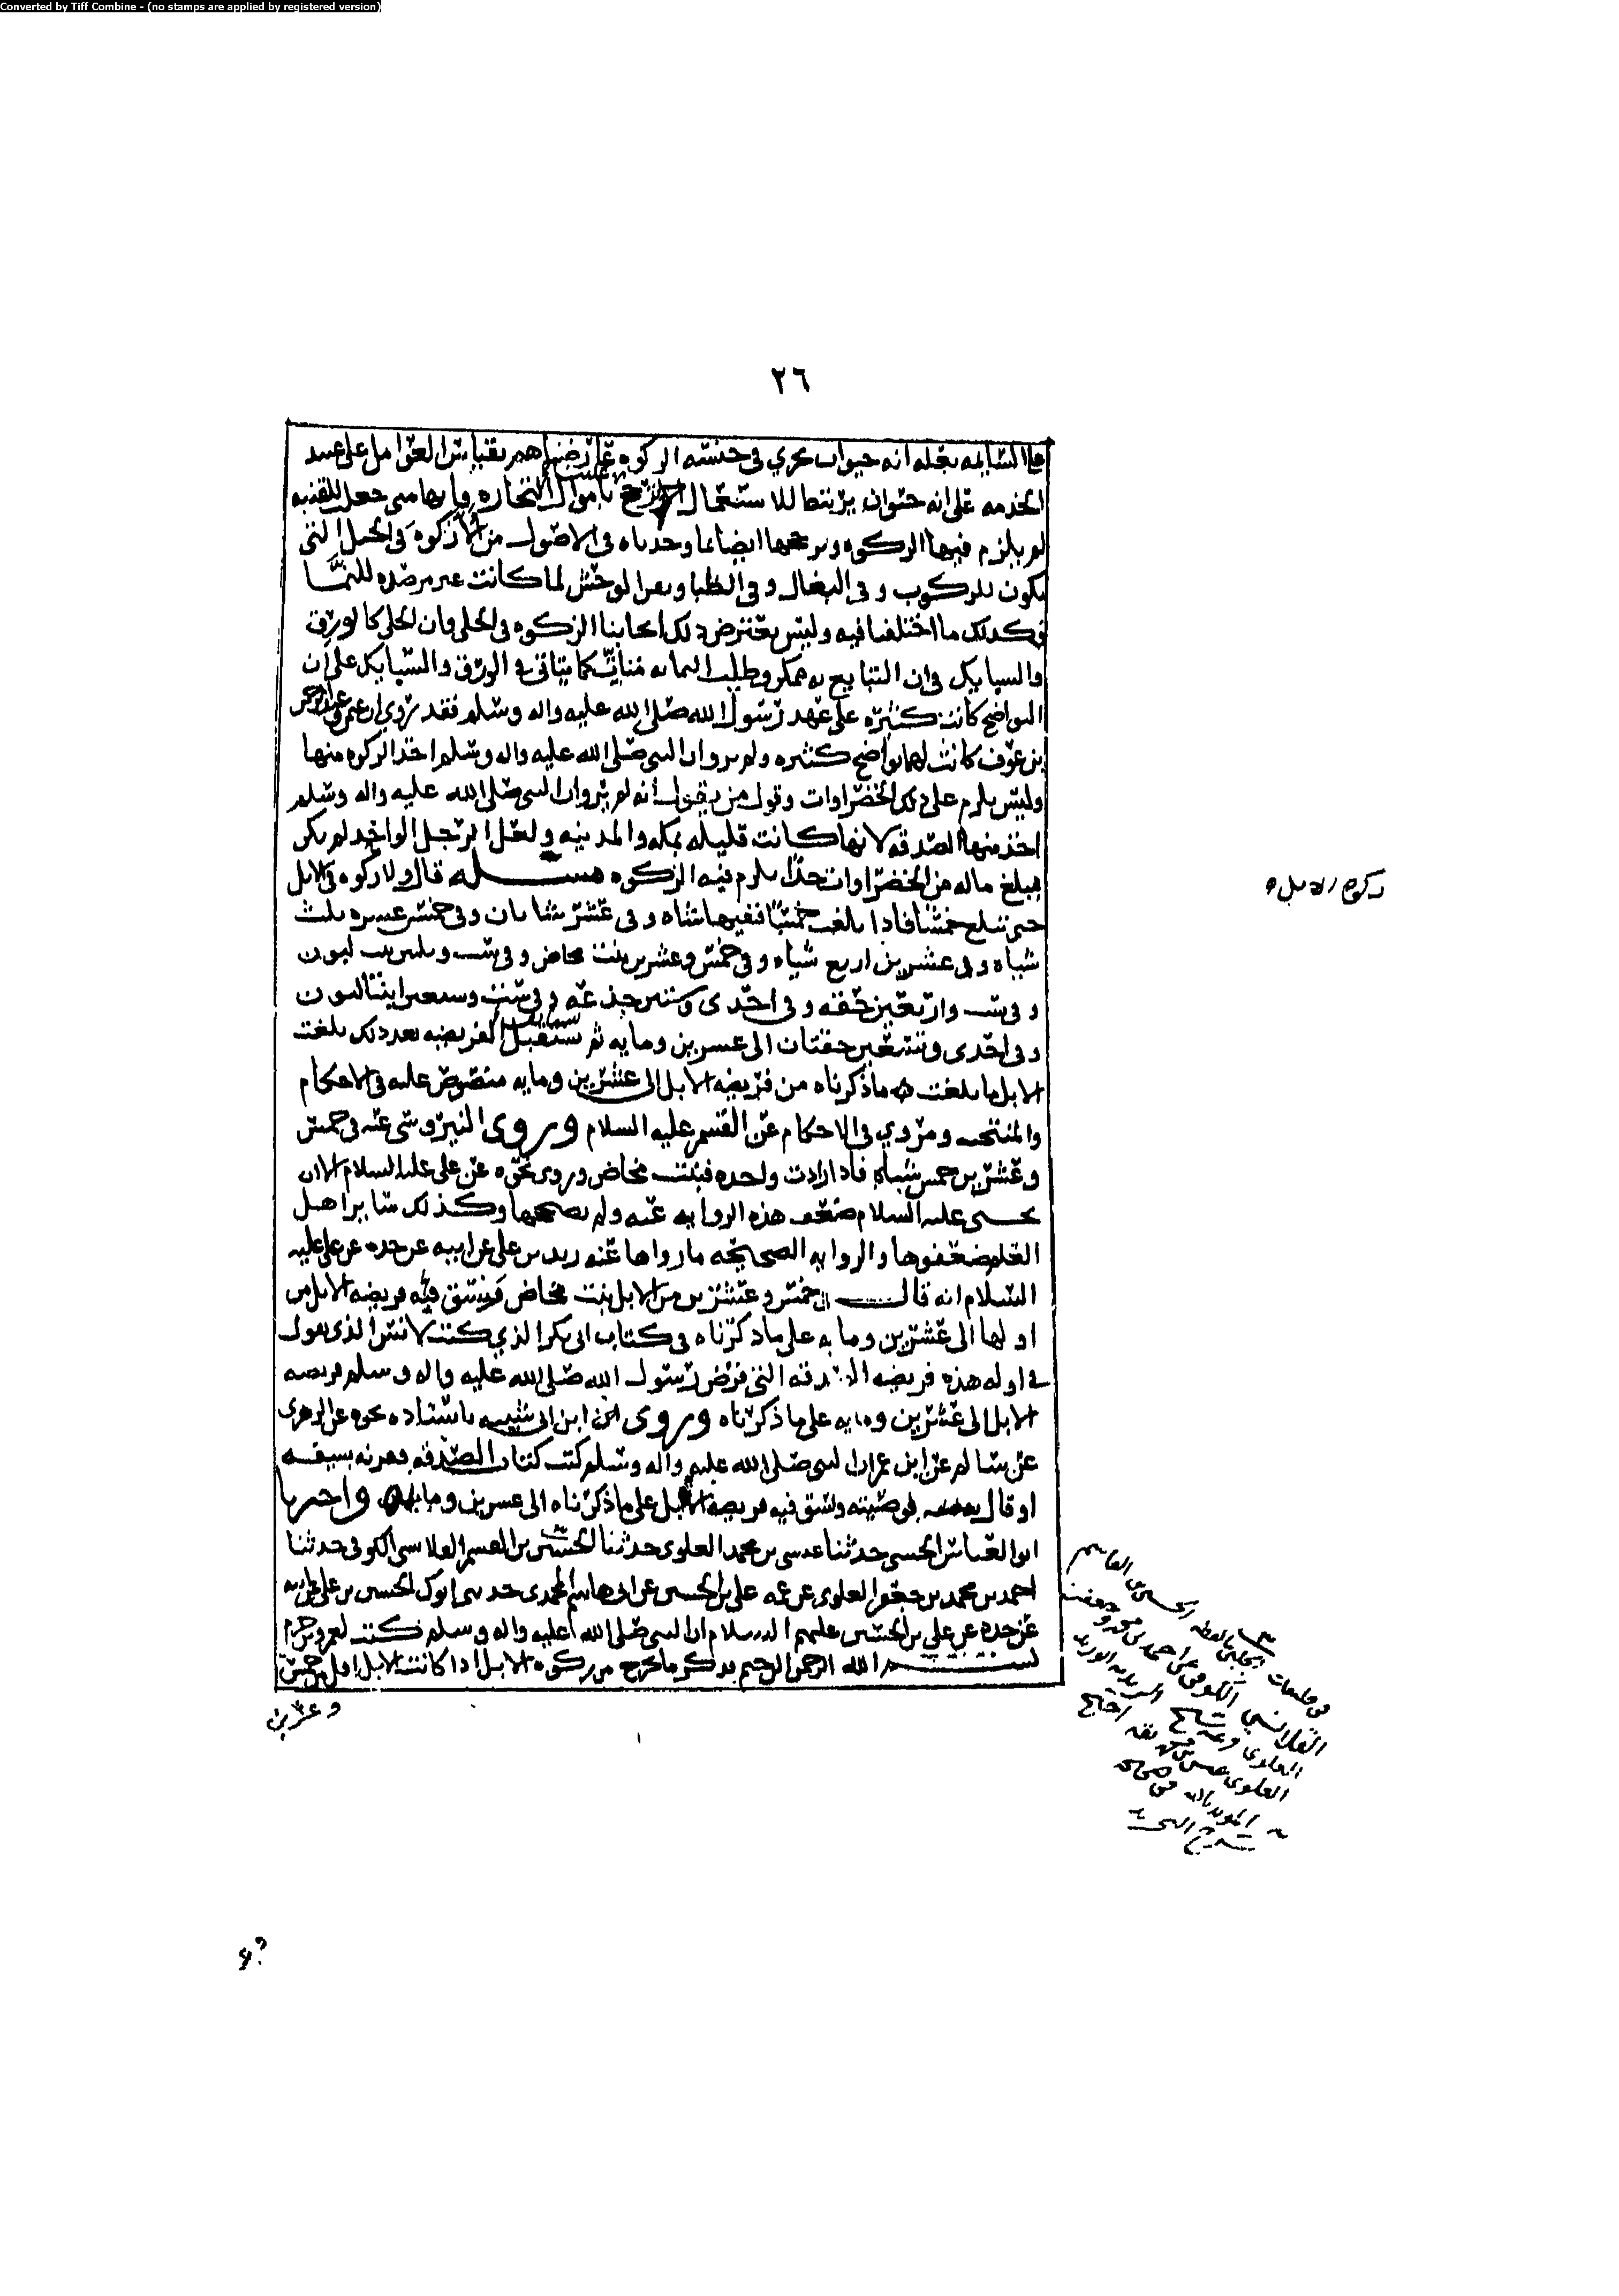 Converted by Tiff Combine - (no stamps are applied by registered version)
٢٦
السايمه بعله انه حيوان يجري في جنسه الزكوه عارضناهم بقياس العوامل على عبيد
الخدمه على انه حيوان يرتبط للاستعمال باموال التجاره وانها متى جعل للقنيه
لم يلزم فيها الزكوه ويرجحها ايضا ما وجدناه في الاصول من الا زكوه في الخيل التي
يكون للركوب وفي البغال وفي الظبا وبقر الوحش لما كانت غير مرصده للنما
فكذلك ما اختلفنا فيه وليس يعترض ذلك ايجابنا الزكوه في الحلي فان الحلي كالورق
والسبايك في ان التبايع به ممكن وطلب النما به متات كما يتاتى في الورق والسبايك على ان
النواضح كانت كثيره على عهد رسول الله صلى الله عليه واله وسلم فقد روي ان عمر وعبد الرحمن
بن عوف كانت لهما نواضح كثيره ولم يرو ان النبي صلى الله عليه واله وسلم اخذ الزكوه منها
وليس يلزم على ذلك الخضراوات وقول من يقول انه لم يرو ان النبي صلى الله عليه واله وسلم
اخذ منها الصدقه لانها كانت قليله بمكه والمدينه ولعل الرجل الواحد لم يكن
يبلغ ماله من الخضراوات حدا يلزم فيه الزكوه مسله قال ولا زكوه في الابل
حتى تبلغ خمسا فاذا بلغت خمسا ففيها شاه وفي عشر شاتان وفي خمس عشره ثلث
شياه وفي عشرين اربع شياه وفي خمس وعشرين بنت مخاض وفي ست وثلثين بنت لبون
وفي ست واربعين حقه وفي احدى وستين جذعه وفي ست وسبعين ابنتا لبون
وفي احدى وتسعين حقتان الى عشرين ومايه ثم تستقبل الفريضه بعد ذلك بلغت
الابل ما بلغت ما ذكرناه من فريضه الابل الى عشرين ومايه منصوص عليه في الاحكام
والمنتخب ومروي في الاحكام عن القسم عليه السلام وروى النيروسي عنه في خمس
وعشرين خمس شياه فاذا زادت واحده فبنت مخاض وروى نحوه عن علي عليه السلام الا ان
يحيى عليه السلام ضعف هذه الروايه عنه ولم يصححها وكذلك ساير اهل
العلم ضعفوها والروايه الصحيحه ما رواها عنه زيد بن علي عن ابيه عن جده عن علي عليه
السلام انه قال في خمس وعشرين من الابل بنت مخاض فنسق فيه فريضه الابل من
اولها الى عشرين ومايه على ما ذكرناه في كتاب ابي بكر الذي كتب لانس الذي يقول
في اوله هذه فريضه الصدقه التي فرض رسول الله صلى الله عليه واله وسلم فريضه
الابل الى عشرين ومايه على ما ذكرناه وروى ابن ابي شيبه باسناده نحوه عن الزهري
عن سالم عن ابن عمر ان النبي صلى الله عليه واله وسلم كتب كتاب الصدقه فقرنه بسيفه
او قال بوصيته ونسق فيه فريضه الابل على ما ذكرناه الى عشرين ومايه واخبرنا
ابو العباس الحسني حدثنا عيسى بن محمد العلوي حدثنا الحسين بن القسم القلانسي الكوفي حدثنا
احمد بن محمد بن جعفر العلوي عن عمه علي بن الحسين عن ابي هاشم المحمدي حدثني ابوك الحسين بن علي عن ابيه
عن جده عن علي بن الحسين عليهم السلام ان النبي صلى الله عليه واله وسلم كتب لعمرو بن حزم
بسم الله الرحمن الرحيم بذكر ما يخرج من زكوه الابل اذا كانت الابل اقل من خمس
وعشرين
زكوه الابل
الحسين بن القاسم
القلانسي الكوفي عن احمد بن محمد بن جعفر
العلوي